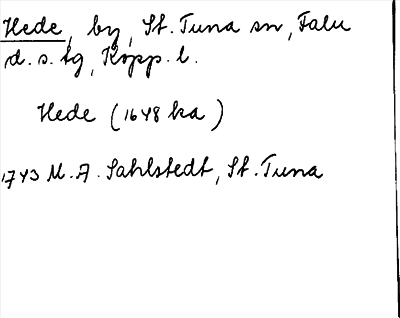 Hede, by, St. Tuna sn, Falu
d.s. tg, Kopp. l.
Hede (1648 ka)
1743 M. A. Sahlstedt, St. Tuna